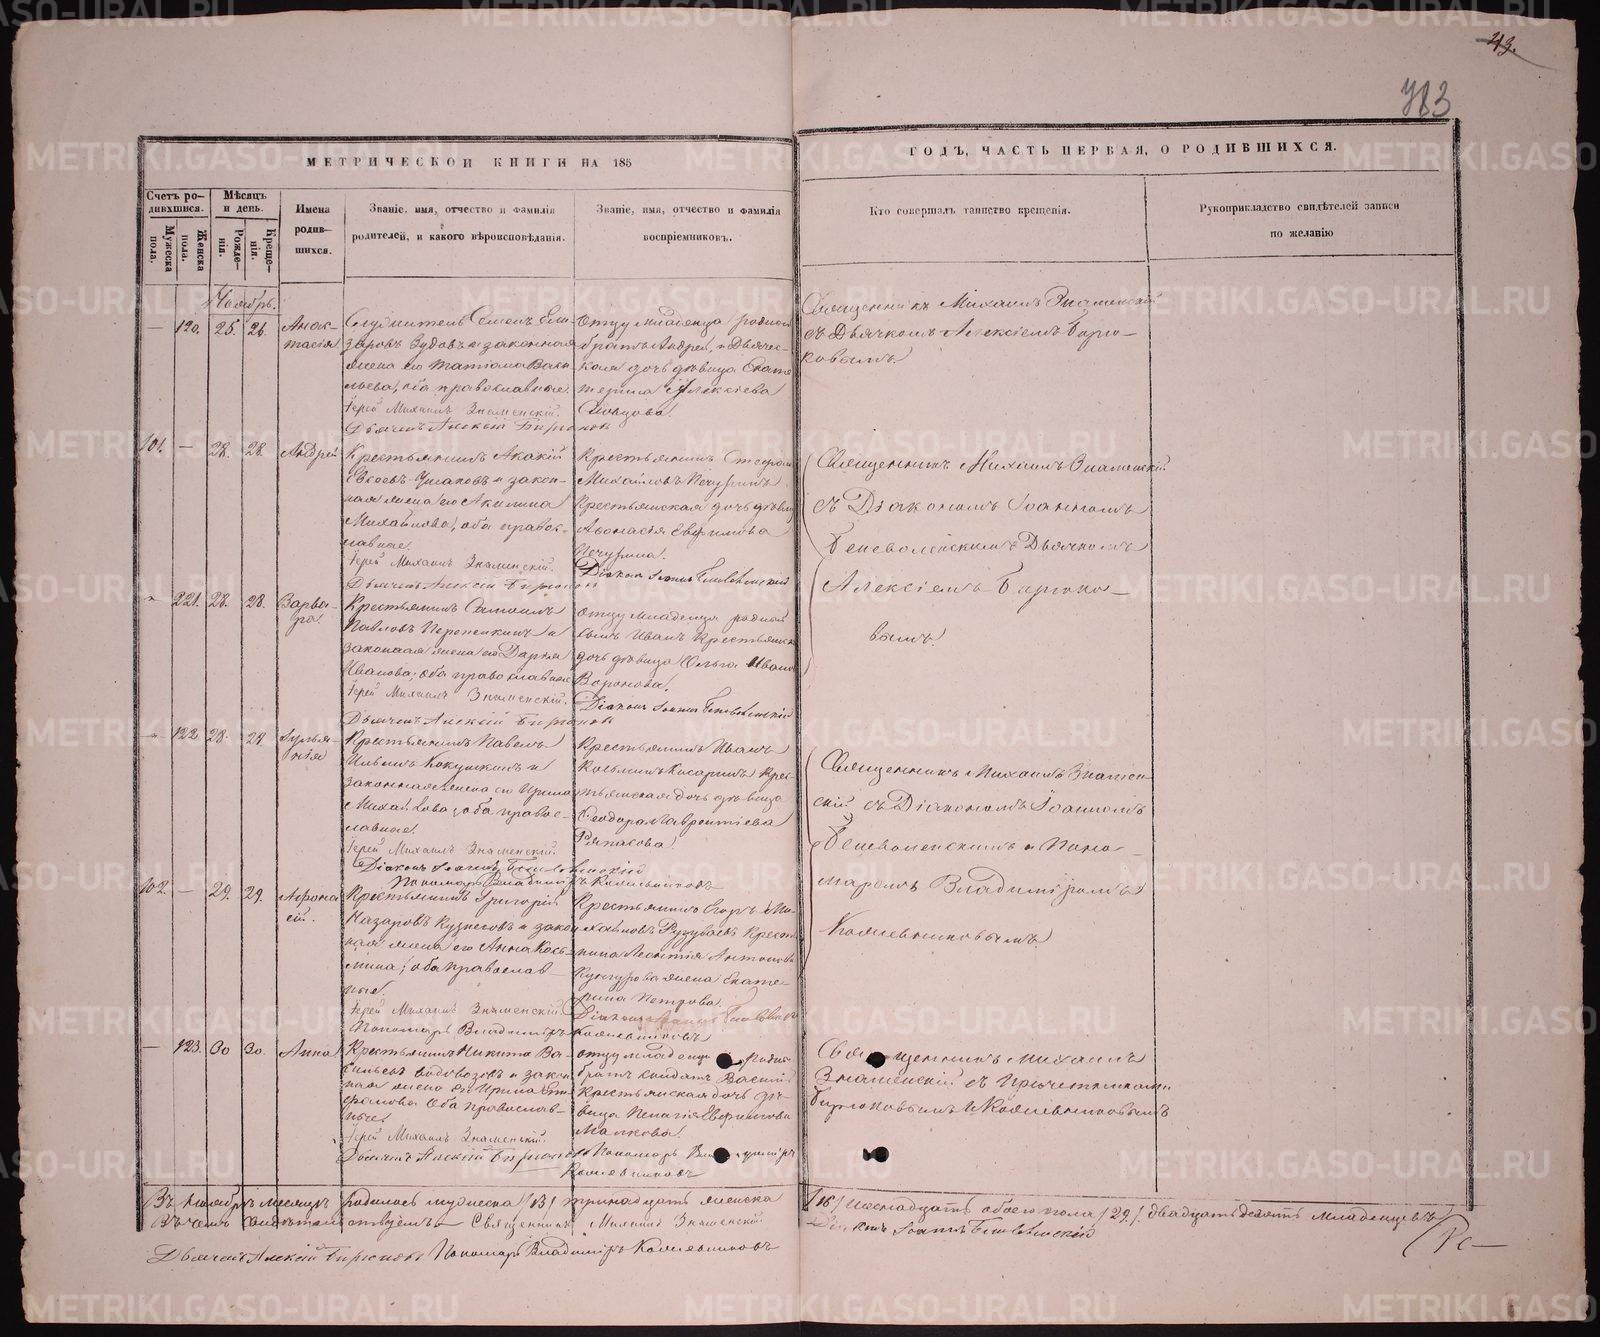 43.
783
МЕТРИЧЕСКОЙ КНИГИ НА 185
ГОДЪ, ЧАСТЬ ПЕРВАЯ, О РОДИВШИХСЯ.
Счетъ ро-
дившихся.
Мужеска
пола.
Женска
пола.
Мѣсяцъ
и день.
Рожде-
нія.
Креще-
нія.
Имена
родив-
шихся.
Званіе, имя, отчество и фамилія
родителей, и какого вѣроисповѣданія.
Званіе, имя, отчество и фамилія
воспріемниковъ.
Кто совершалъ таинство крещенія.
Рукоприкладство свидѣтелей записи
по желанію
Ноябрь.
— 120. 25. 26.
Анас-
тасія
Служитель Семенъ Ели-
заровъ Зудовъ и законная
жена его Татіана Васи-
льева, оба православные.
Іерей Михаилъ Знаменскій.
Дьячекъ Алексій Бирюковъ
Отцу младенца родной
братъ Андрей, и Дьячес-
кая дочь дѣвица Екате
терина Алексіева
Священникъ Михаилъ Знаменскій
съ Дьячкомъ Алексіемъ Бирю-
ковымъ.
101. — 28. 28.
Андрей
Крестьянинъ Акакій
Ушаковъ и закон-
ная жена его Акилина
Михайлова, оба правос-
лавные.
Іерей Михаилъ Знаменскій.
Дьячекъ Алексій Бирюковъ
Крестьянинъ Стефанъ
Михайловъ Печуринъ
Крестьянская дочь дѣвица
Афанасія Евфимова
Печурина.
Діаконъ Іоаннъ Беневоленскій
Священникъ Михаилъ Знаменскій
съ Діакономъ Іоанномъ
Беневоленскимъ Дьячкомъ
Алексіемъ Бирюко-
вымъ.
221. 28. 28.
Варва-
ра.
Крестьянинъ Самоилъ
Павловъ и
законная жена его Дарья
Иванова, оба православные
Іерей Михаилъ Знаменскій.
Дьячекъ Алексій Бирюковъ
отцу младенца родной
сынъ Иванъ Крестьянск
дочь дѣвица Ольга Ивано
Воронова.
Діаконъ Іоаннъ Беневоленскій
122 28. 29
Іульян-
нія
Крестьянинъ Павелъ
Ильинъ Кокушкинъ и
законная жена его Ирина
Михайлова, оба правос-
лавные.
Іерей Михаилъ Знаменскій.
Діаконъ Іоаннъ Беневоленскій
Пономарь Владиміръ Колпевниковъ
Крестьянинъ Иванъ
Косьминъ Крес-
тьянская дочь дѣвица
Феодора Лаврентіева
Священникъ Михаилъ Знамен
скій съ Діакономъ Іоанномъ
Беневоленскимъ и Поно-
маремъ Владиміромъ
102. — 29. 29.
Афона
сій.
Крестьянинъ Григорій
Назаровъ Кузнецовъ и закон
ная жена его Анна Кось-
мина, оба православ-
ные.
Іерей Михаилъ Знаменскій.
Пономарь Владиміръ
Крестьянинъ Егоръ Ми-
хайловъ Крестья
нина Леонтія Антонова
Кунгурова жена Екате-
рина Петрова.
— 123. 30 30.
Анна
Крестьянинъ Никита Ва-
сильевъ Водовозовъ и закон
ная жена его Ирина Сте
фанова оба православ-
ные.
Іерей Михаилъ Знаменскій.
Дьячекъ Алексій Бирюковъ
отцу младенца родной
братъ солдатъ Василій
Крестьянская дочь дѣ-
вица Пелагія Евфимова
Малкова.
Пономарь Владиміръ
Священникъ Михаилъ
Знаменскій съ Причетниками
Въ Ноябрѣ месяцѣ родилось мужеска /13/ тринадцать женска
/16/ шестнадцать обоего пола /29/ двадцать девять младенцевъ
Въ чемъ свидѣтельствуемъ Священникъ Михаилъ Знаменскій
Діаконъ Іоаннъ Беневоленскій
Дьячекъ Алексій Бирюковъ Пономарь Владиміръ
METRIKI.GASO-URAL.RU